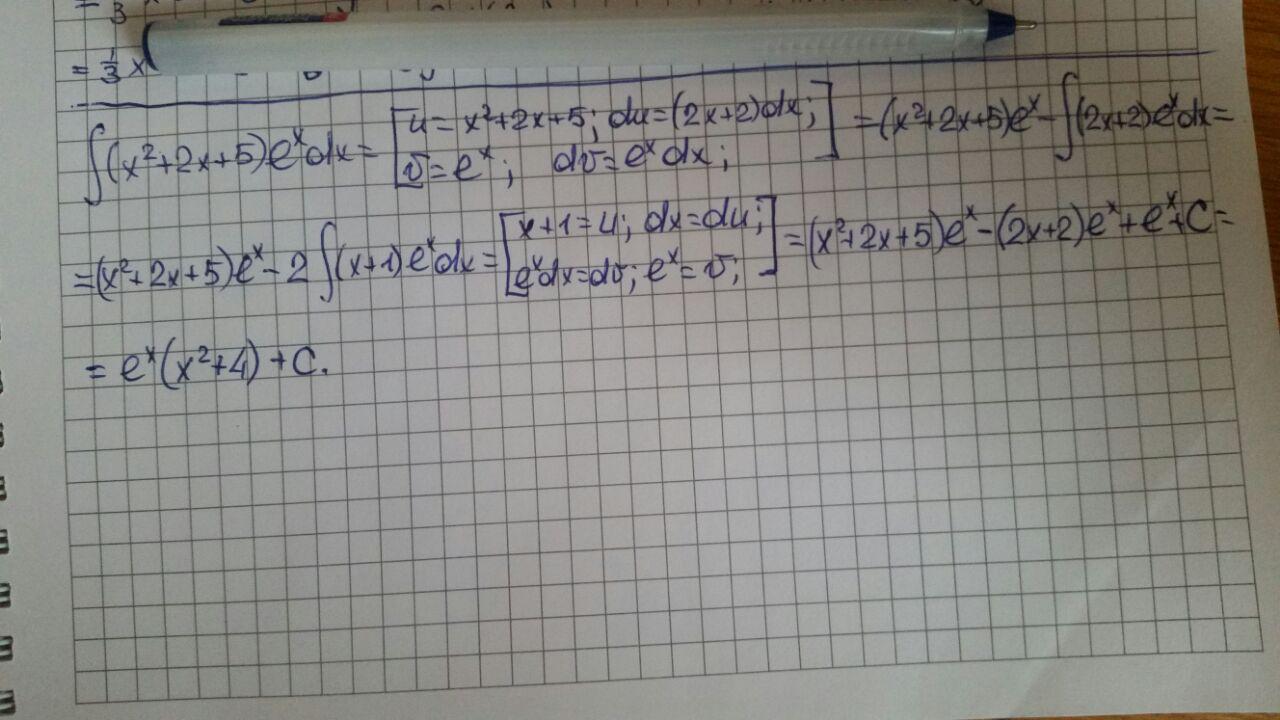 = 1/3 x
∫(x²+2x+5)eˣdx = [u = x²+2x+5; du = (2x+2)dx; v = eˣ; dv = eˣdx;] = (x²+2x+5)eˣ - ∫(2x+2)eˣdx =
= (x²+2x+5)eˣ - 2∫(x+1)eˣdx = [x+1 = u; dx = du; eˣdx = dv; eˣ = v;] = (x²+2x+5)eˣ - (2x+2)eˣ + eˣ + C =
= eˣ(x²+4) + C.